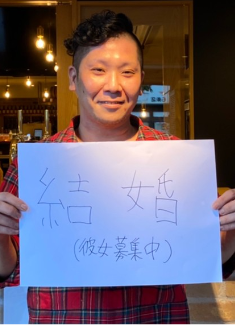 結婚
(彼女募集中)